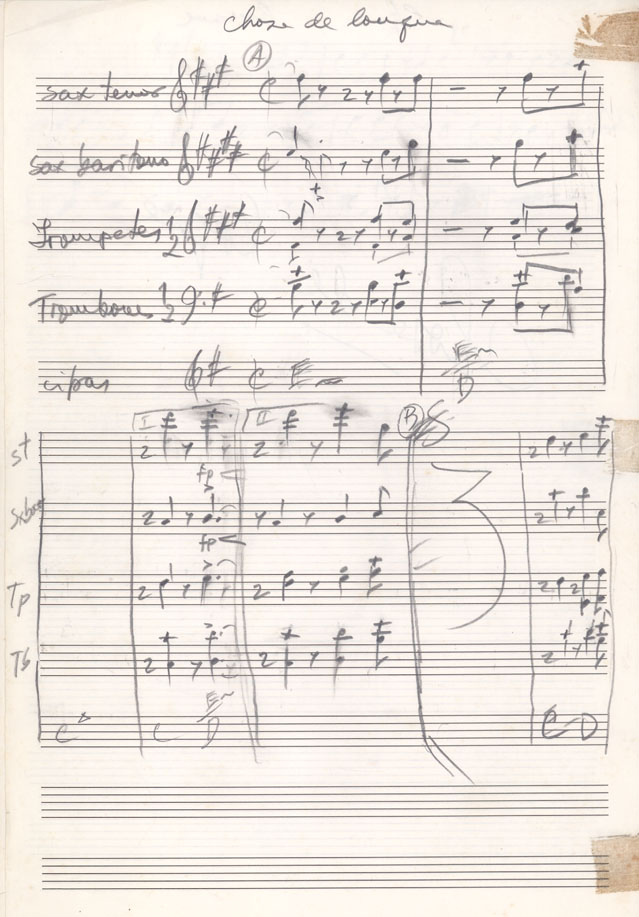 chose de louqua
A
sax tenor
sax baritono
Trompetes 1/2
Trombones 1/2
cifras Em Em/D
I II B
st
fp
Sxbar
fp
Tp
Tb
C Em/D C D